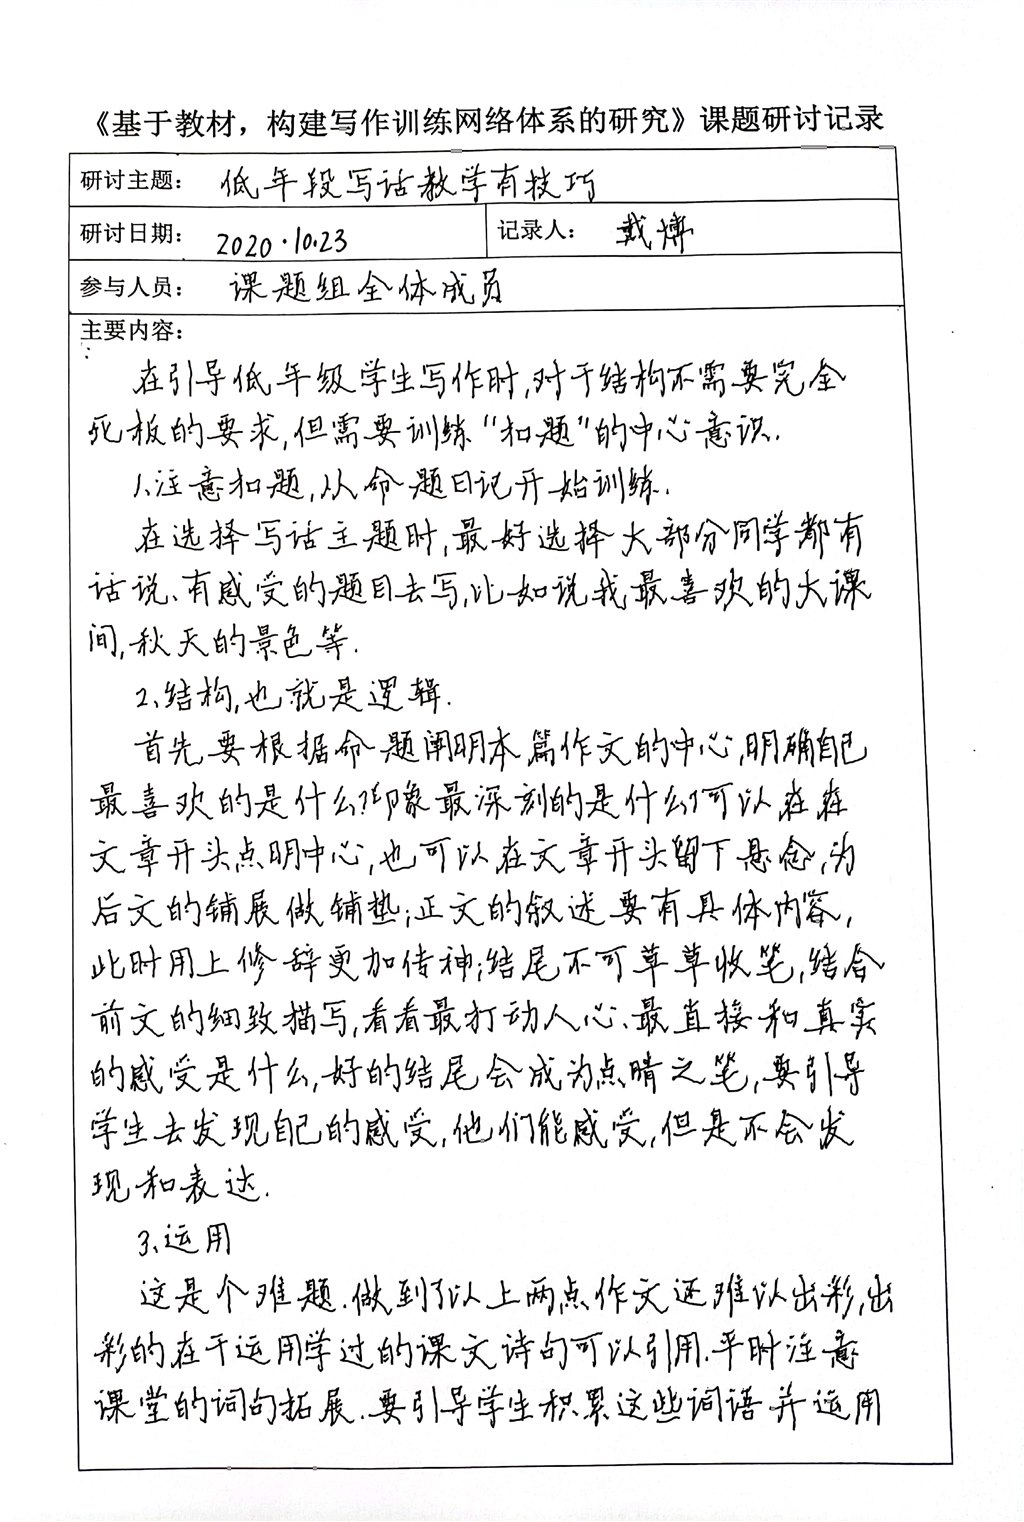 《基于教材，构建写作训练网络体系的研究》课题研讨记录
研讨主题： 低年段写话教学有技巧
研讨日期： 2020.10.23 记录人： 戴婷
参与人员： 课题组全体成员
主要内容：
在引导低年级学生写作时,对于结构不需要完全
死板的要求,但需要训练“扣题”的中心意识.
1、注意扣题,从命题日记开始训练.
在选择写话主题时,最好选择大部分同学都有
话说、有感受的题目去写,比如说我最喜欢的大课
间,秋天的景色等.
2、结构,也就是逻辑.
首先要根据命题阐明本篇作文的中心,明确自己
最喜欢的是什么?印象最深刻的是什么?可以在在
文章开头点明中心,也可以在文章开头留下悬念,为
后文的铺展做铺垫;正文的叙述要有具体内容,
此时用上修辞更加传神;结尾不可草草收笔,结合
前文的细致描写,看看最打动人心、最直接和真实
的感受是什么,好的结尾会成为点睛之笔,要引导
学生去发现自己的感受,他们能感受,但是不会发
现和表达.
3、运用
这是个难题.做到了以上两点作文还难以出彩,出
彩的在于运用学过的课文诗句可以引用.平时注意
课堂的词句拓展.要引导学生积累这些词语并运用